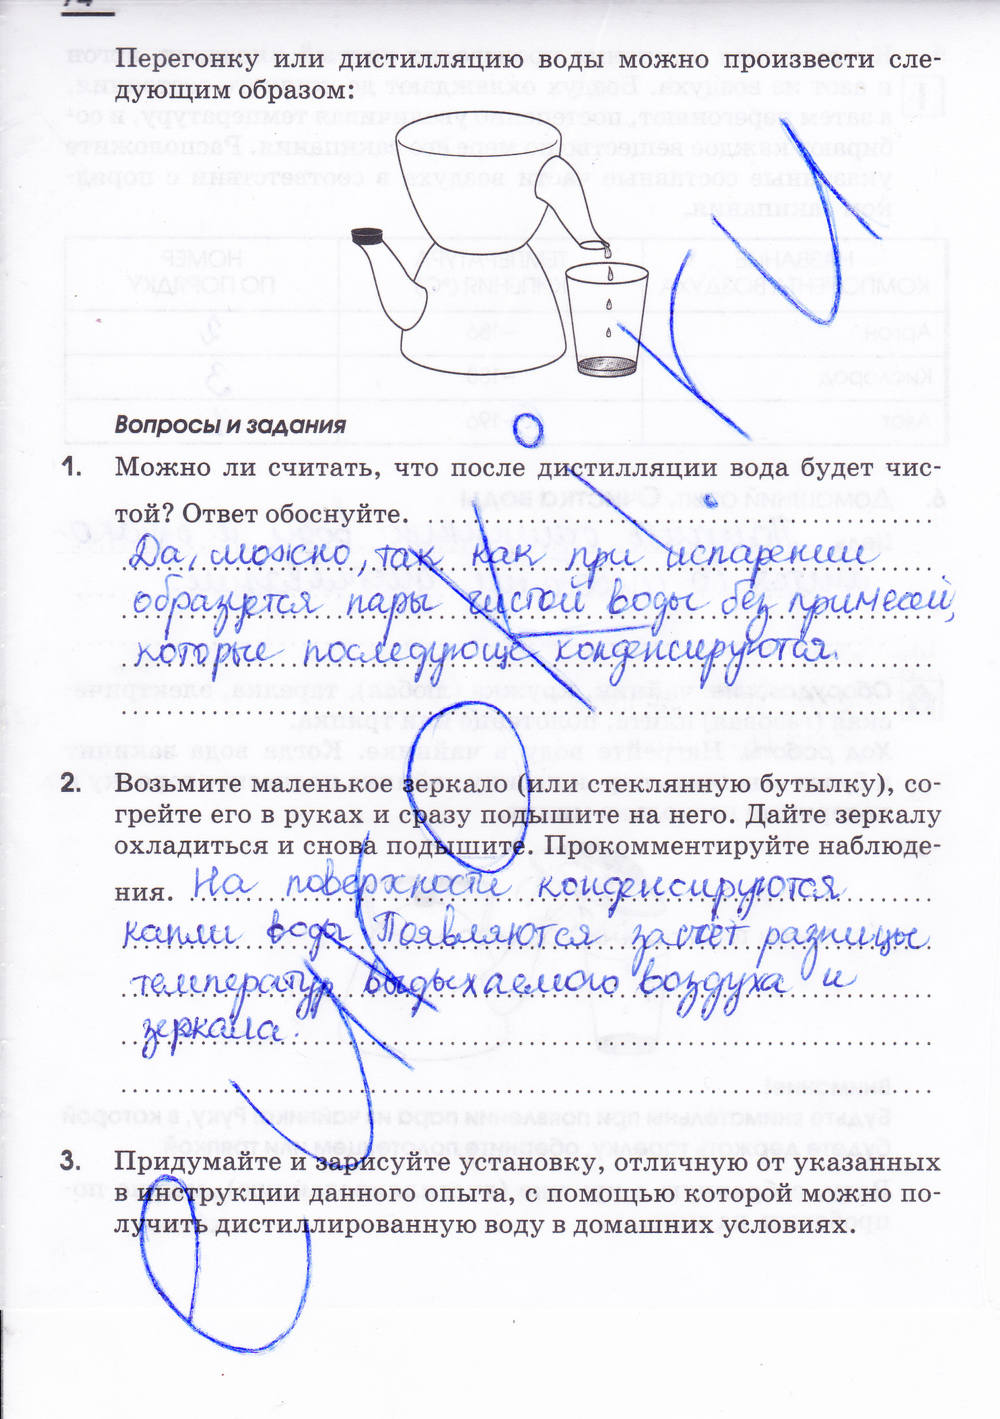 74
Перегонку или дистилляцию воды можно произвести сле-
дующим образом:
Вопросы и задания
1. Можно ли считать, что после дистилляции вода будет чис-
той? Ответ обоснуйте.
Да, можно, так как при испарении
образуется пары чистой воды без примесей,
которые последующе конденсируются.
2. Возьмите маленькое зеркало (или стеклянную бутылку), со-
грейте его в руках и сразу подышите на него. Дайте зеркалу
охладиться и снова подышите. Прокомментируйте наблюде-
ния. На поверхности конденсируются
капли воды Появляются за счёт разницы
температур выдыхаемого воздуха и
зеркала.
3. Придумайте и зарисуйте установку, отличную от указанных
в инструкции данного опыта, с помощью которой можно по-
лучить дистиллированную воду в домашних условиях.